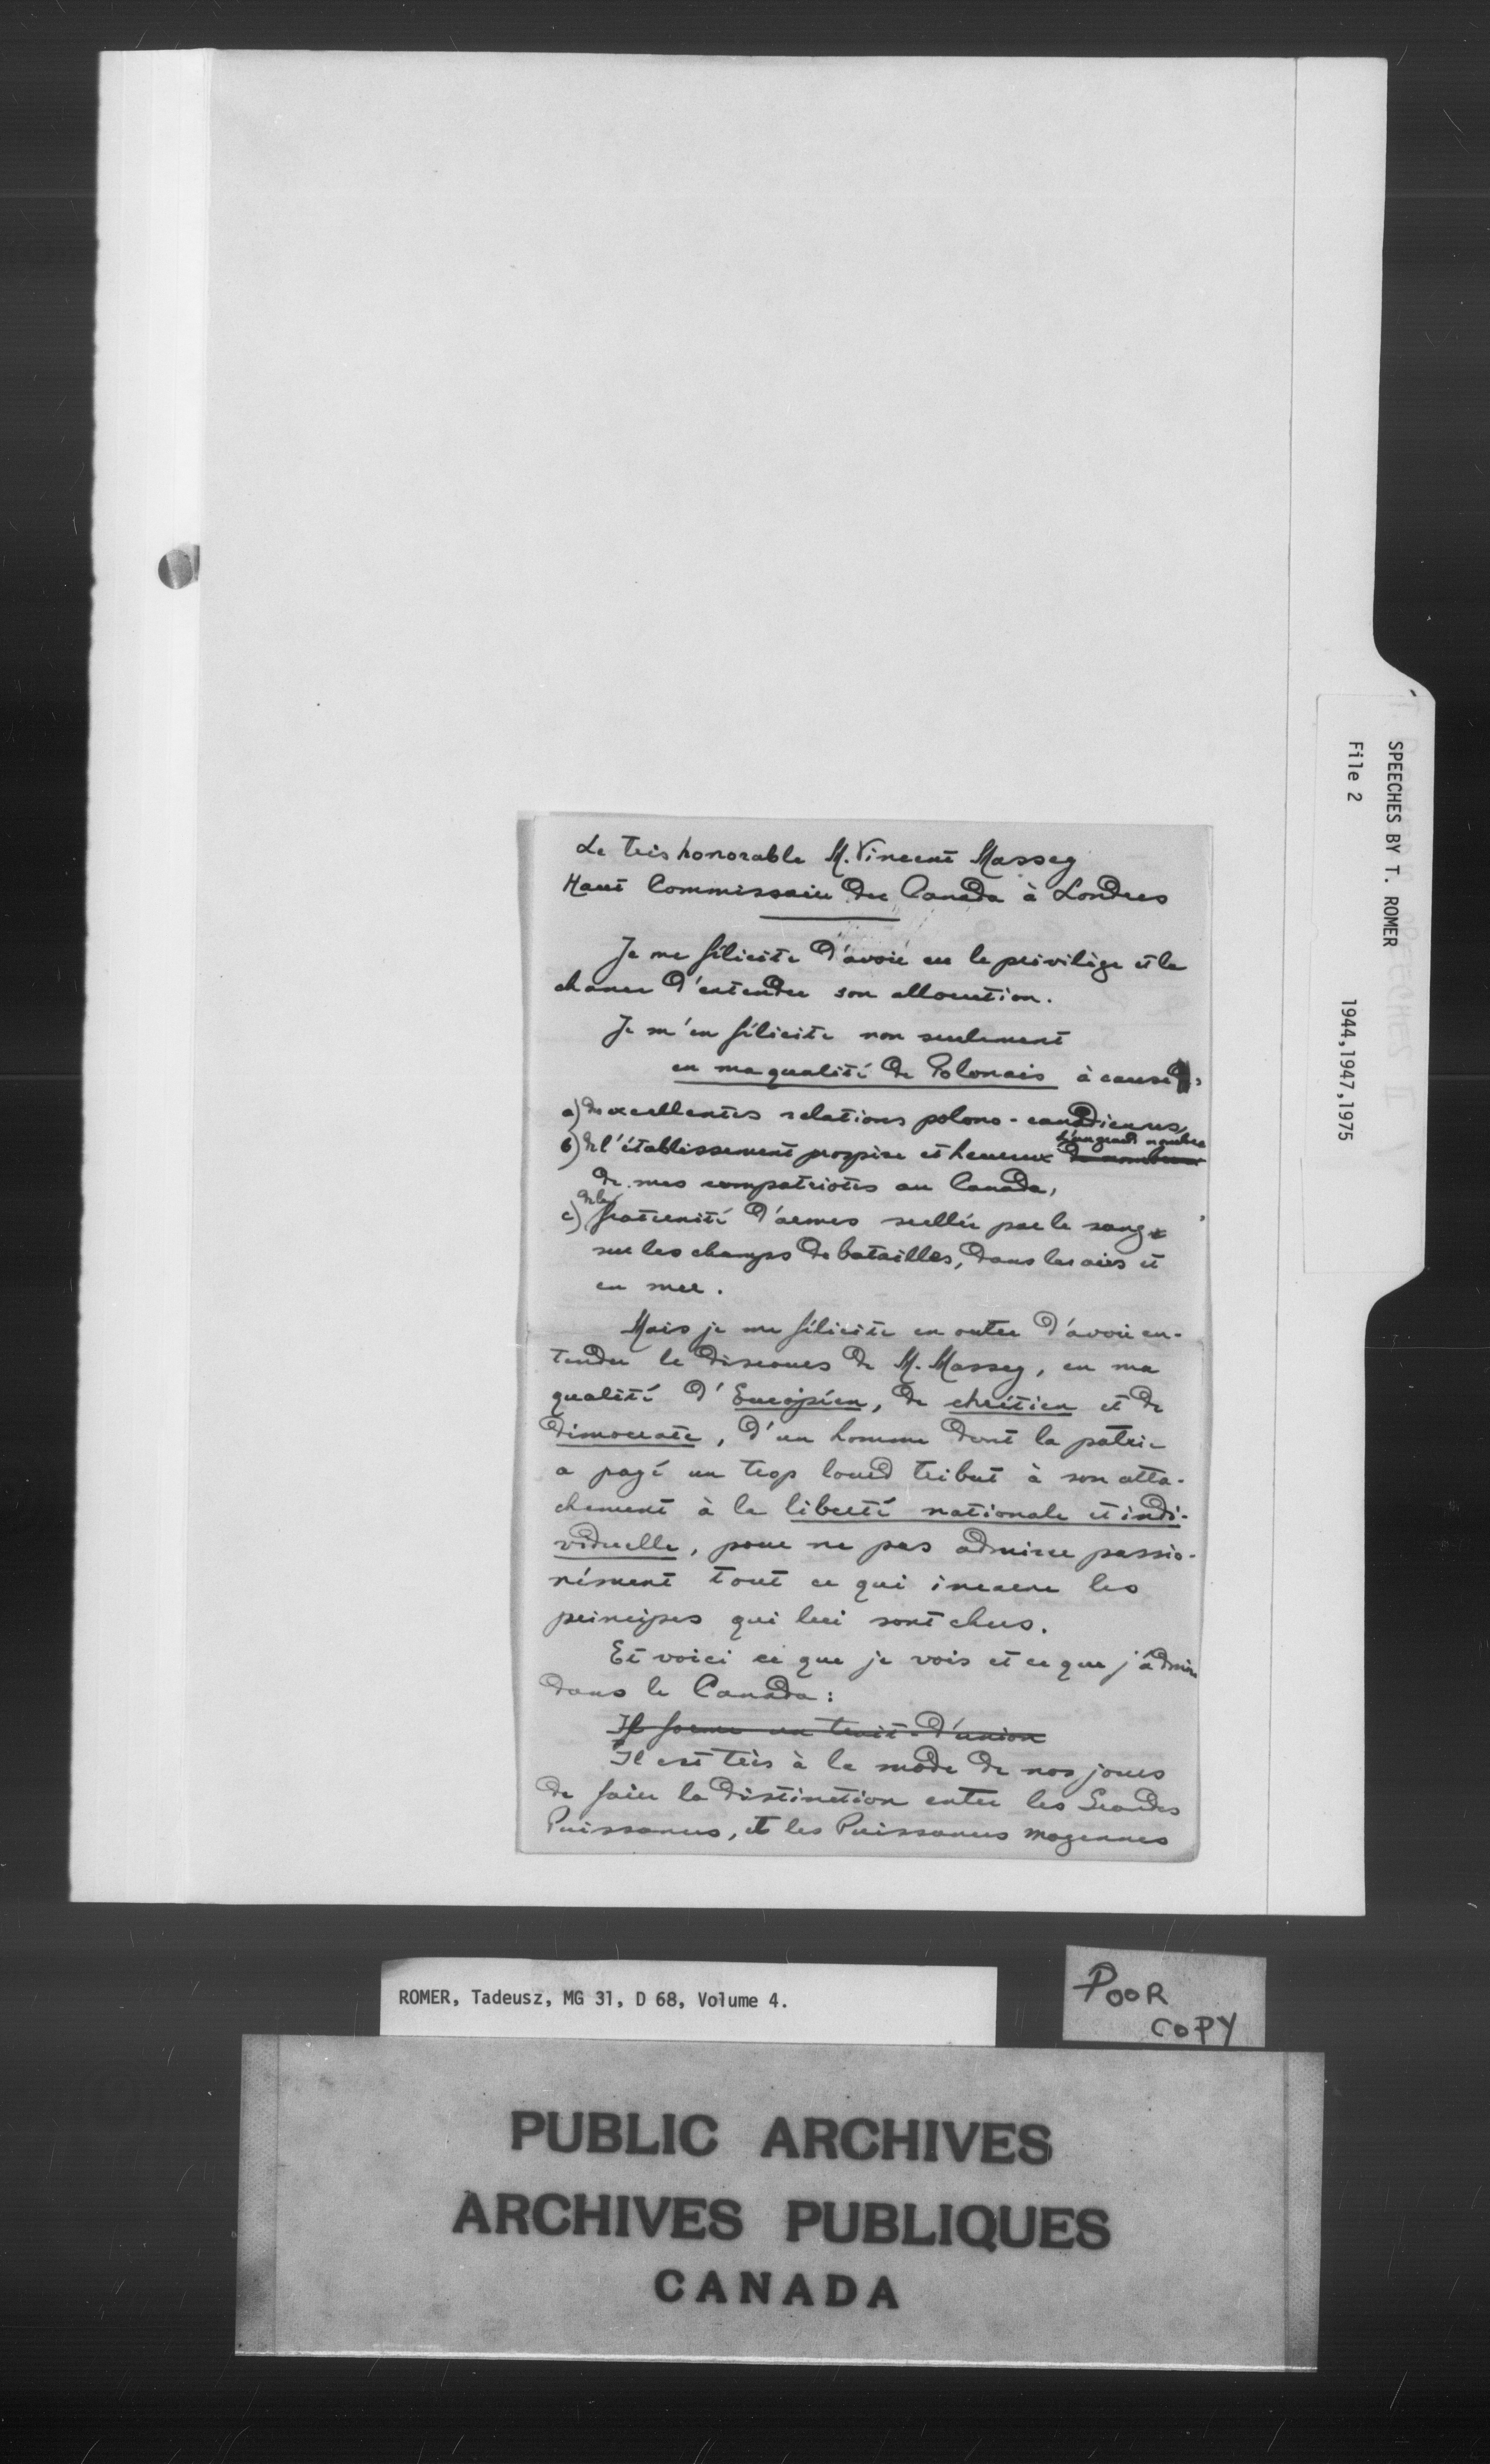 Le très honorable M. Vincent Massey
Haut Commissaire du Canada à Londres
Je me félicite d'avoir eu le privilège et la
chance d'entendre son allocution.
Je m'en félicite non seulement
en ma qualité de Polonais à cause:
a) des excellentes relations polono-canadiennes,
d'un grand nombre
b) de l'établissement prospère et heureux de nombreux
de mes compatriotes au Canada,
de la
c) fraternité d'armes scellée par le sang
sur les champs de batailles, dans les airs et
en mer.
Mais je me félicite en outre d'avoir en-
tendu le discours de M. Massey, en ma
qualité d'Européen, de chrétien et de
démocrate, d'un homme dont la patrie
a payé un trop lourd tribut à son atta-
chement à la liberté nationale et indi-
viduelle, pour ne pas admirer passio-
nément tout ce qui incarne les
principes qui lui sont chers.
Et voici ce que je vois et ce que j'admire
dans le Canada:
Il forme un trait-d'union
Il est très à la mode de nos jours
de faire la distinction entre les Grandes
Puissances, et les Puissances moyennes
SPEECHES BY T. ROMER
File 2
1944,1947,1975
ROMER, Tadeusz, MG 31, D 68, Volume 4.
POOR
COPY
PUBLIC ARCHIVES
ARCHIVES PUBLIQUES
CANADA